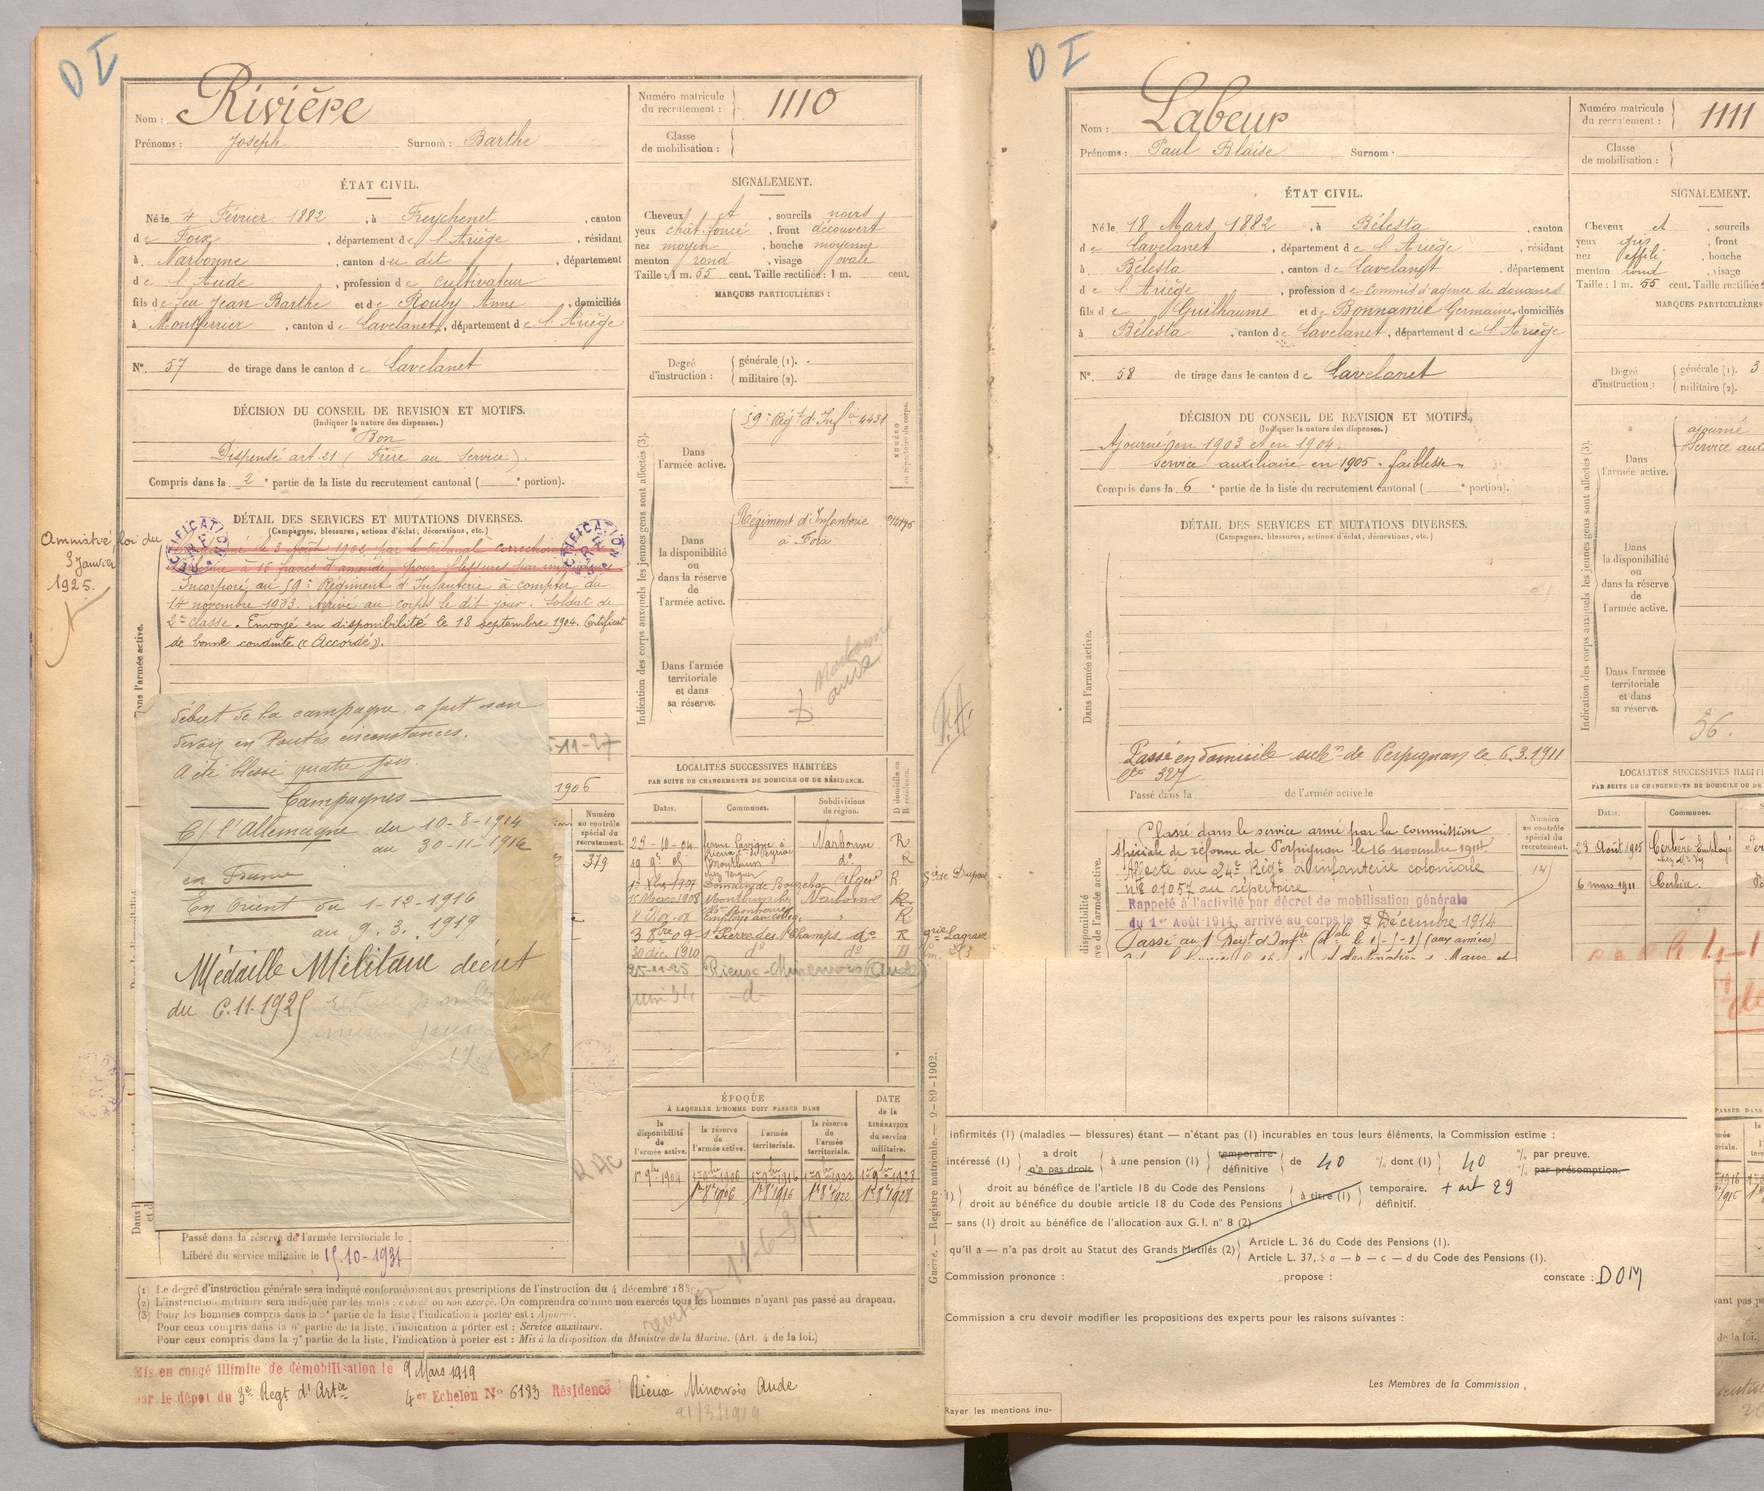 D I
Nom : Rivière
Prénoms : Joseph Surnom : Barthe
Numéro matricule du recrutement : 1110
Classe de mobilisation :
ÉTAT CIVIL.
Né le 4 Février 1882, à Freychenet, canton
de Foix, département de l'Ariège, résidant
à Narbonne, canton du dit, département
de l'Aude, profession de cultivateur
fils de feu Jean Barthe et de Rouby Anne, domiciliés
à Montferrier, canton de Lavelanet, département de l'Ariège
N° 57 de tirage dans le canton de Lavelanet
SIGNALEMENT.
Cheveux et, sourcils noirs
yeux chât. foncé, front découvert
nez moyen, bouche moyenne
menton rond, visage ovale
Taille : 1 m. 55 cent. Taille rectifiée : 1 m. cent.
MARQUES PARTICULIÈRES :
Degré d'instruction : générale (1). militaire (2).
DÉCISION DU CONSEIL DE REVISION ET MOTIFS.
(Indiquer la nature des dispenses.)
Bon
Dispensé art. 21 (Frère au Service).
Compris dans la 2e partie de la liste du recrutement cantonal ( e portion).
DÉTAIL DES SERVICES ET MUTATIONS DIVERSES.
(Campagnes, blessures, actions d'éclat, décorations, etc.)
Amnistié loi du
3 Janvier
1925.
le 3 Août 1902 par le tribunal correctionnel de
à 16 francs d'amende pour blessures par
Incorporé au 59e Régiment d'Infanterie à compter du
14 novembre 1903. Arrivé au corps le dit jour. Soldat de
2e classe. Envoyé en disponibilité le 18 septembre 1904. Certificat
de bonne conduite "Accordé".
Dans l'armée active.
début de la campagne a fait son
devoir en toutes circonstances.
A été blessé quatre fois.
Campagnes
C/ l'Allemagne du 10-8-1914
au 30-11-1916
en France
En Orient du 1-12-1916
au 9.3.1919
Médaille Militaire décret
du 6.11.1925
1906
Numéro au contrôle spécial du recrutement.
379
Passé dans la réserve de l'armée territoriale le
Libéré du service militaire le 15.10-1931
Indication des corps auxquels les jeunes gens sont affectés (3).
Dans l'armée active.
59e Régt d'Infie 4431
NUMÉRO au répertoire du corps.
Dans la disponibilité ou dans la réserve de l'armée active.
Régiment d'Infanterie
à Foix
Dans l'armée territoriale et dans sa réserve.
Narbonne
Aude
LOCALITÉS SUCCESSIVES HABITÉES
PAR SUITE DE CHANGEMENTS DE DOMICILE OU DE RÉSIDENCE.
Dates. Communes. Subdivisions de région. D domicile ou R résidence.
23-10-04 Narbonne R
d° R
1907 Alger R
1908 Narbonne R
R
3 8bre 09 St Pierre des Champs d° R Lagrasse
30 déc. 1910 d° d°
25-11-25 Rieux-Minervois (Aude)
Juin 34 -d-
ÉPOQUE
À LAQUELLE L'HOMME DOIT PASSER DANS
la disponibilité de l'armée active. la réserve de l'armée active. l'armée territoriale. la réserve de l'armée territoriale. DATE de la LIBÉRATION du service militaire.
1er 9bre 1904 1er 9bre 1906 1er 9bre 1916 1er 9bre 1922 1er 9bre 1928
1er 8bre 1906 1er 8bre 1916 1er 8bre 1922 1er 8bre 1928
11-6-34
(1) Le degré d'instruction générale sera indiqué conformément aux prescriptions de l'instruction du 4 décembre 188
(2) L'instruction militaire sera indiquée par les mots : exercé ou non exercé. On comprendra comme non exercés tous les hommes n'ayant pas passé au drapeau.
(3) Pour les hommes compris dans la 5e partie de la liste, l'indication à porter est : Ajourné.
Pour ceux compris dans la 6e partie de la liste, l'indication à porter est : Service auxiliaire.
Pour ceux compris dans la 7e partie de la liste, l'indication à porter est : Mis à la disposition du Ministre de la Marine. (Art. 4 de la loi.)
Mis en congé illimité de démobilisation le 9 Mars 1919
par le dépot du 3e Regt d'Artie 4e Echelon N° 6133 Résidence Rieux Minervois Aude
21/3/1919
Guerre. — Registre matricule. — 9-89-1902.
D I
Nom : Labeur
Prénoms : Paul Blaise Surnom :
Numéro matricule du recrutement : 1111
Classe de mobilisation :
ÉTAT CIVIL.
Né le 18 Mars 1882, à Bélesta, canton
de Lavelanet, département de l'Ariège, résidant
à Bélesta, canton de Lavelanet, département
de l'Ariège, profession de commis d'agence de douanes
fils de Guilhaume et de Bonnamie Germaine, domiciliés
à Bélesta, canton de Lavelanet, département de l'Ariège
N° 58 de tirage dans le canton de Lavelanet
SIGNALEMENT.
Cheveux et, sourcils
yeux gris, front
nez effilé, bouche
menton rond, visage
Taille : 1 m. 55 cent. Taille rectifiée
MARQUES PARTICULIÈRES
Degré d'instruction : générale (1). 3 militaire (2).
DÉCISION DU CONSEIL DE REVISION ET MOTIFS.
(Indiquer la nature des dispenses.)
Ajourné en 1903 et en 1904.
Service auxiliaire en 1905 "faiblesse"
Compris dans la 6e partie de la liste du recrutement cantonal ( e portion).
DÉTAIL DES SERVICES ET MUTATIONS DIVERSES.
(Campagnes, blessures, actions d'éclat, décorations, etc.)
Dans l'armée active.
Passé en domicile subon de Perpignan le 6.3.1911
327
Passé dans la de l'armée active le
Classé dans le service armé par la commission
spéciale de réforme de Perpignan le 16 novembre 1914.
Affecté au 24e Régt d'infanterie coloniale
n° 01057 au répertoire
Rappelé à l'activité par décret de mobilisation générale
du 1er Août 1914, arrivé au corps le 7 Décembre 1914
Numéro au contrôle spécial du recrutement.
Indication des corps auxquels les jeunes gens sont affectés (3).
Dans l'armée active.
ajourné
Service aux
Dans la disponibilité ou dans la réserve de l'armée active.
Dans l'armée territoriale et dans sa réserve.
36.
LOCALITÉS SUCCESSIVES HABIT
PAR SUITE DE CHANGEMENTS DE DOMICILE OU
Dates. Communes.
23 Août 1905 Cerbère Employé
6 mars 1911 Cerbère
infirmités (1) (maladies — blessures) étant — n'étant pas (1) incurables en tous leurs éléments, la Commission estime :
intéressé (1) a droit n'a pas droit à une pension (1) temporaire définitive de 40 % dont (1) 40 % par preuve. % par présomption.
droit au bénéfice de l'article 18 du Code des Pensions
droit au bénéfice du double article 18 du Code des Pensions à titre (1) temporaire. définitif. + art 29
— sans (1) droit au bénéfice de l'allocation aux G.I. n° 8 (2)
qu'il a — n'a pas droit au Statut des Grands Mutilés (2) Article L. 36 du Code des Pensions (1).
Article L. 37, § a — b — c — d du Code des Pensions (1).
Commission prononce : propose : constate : DOM
Commission a cru devoir modifier les propositions des experts pour les raisons suivantes :
Les Membres de la Commission,
Rayer les mentions inu-